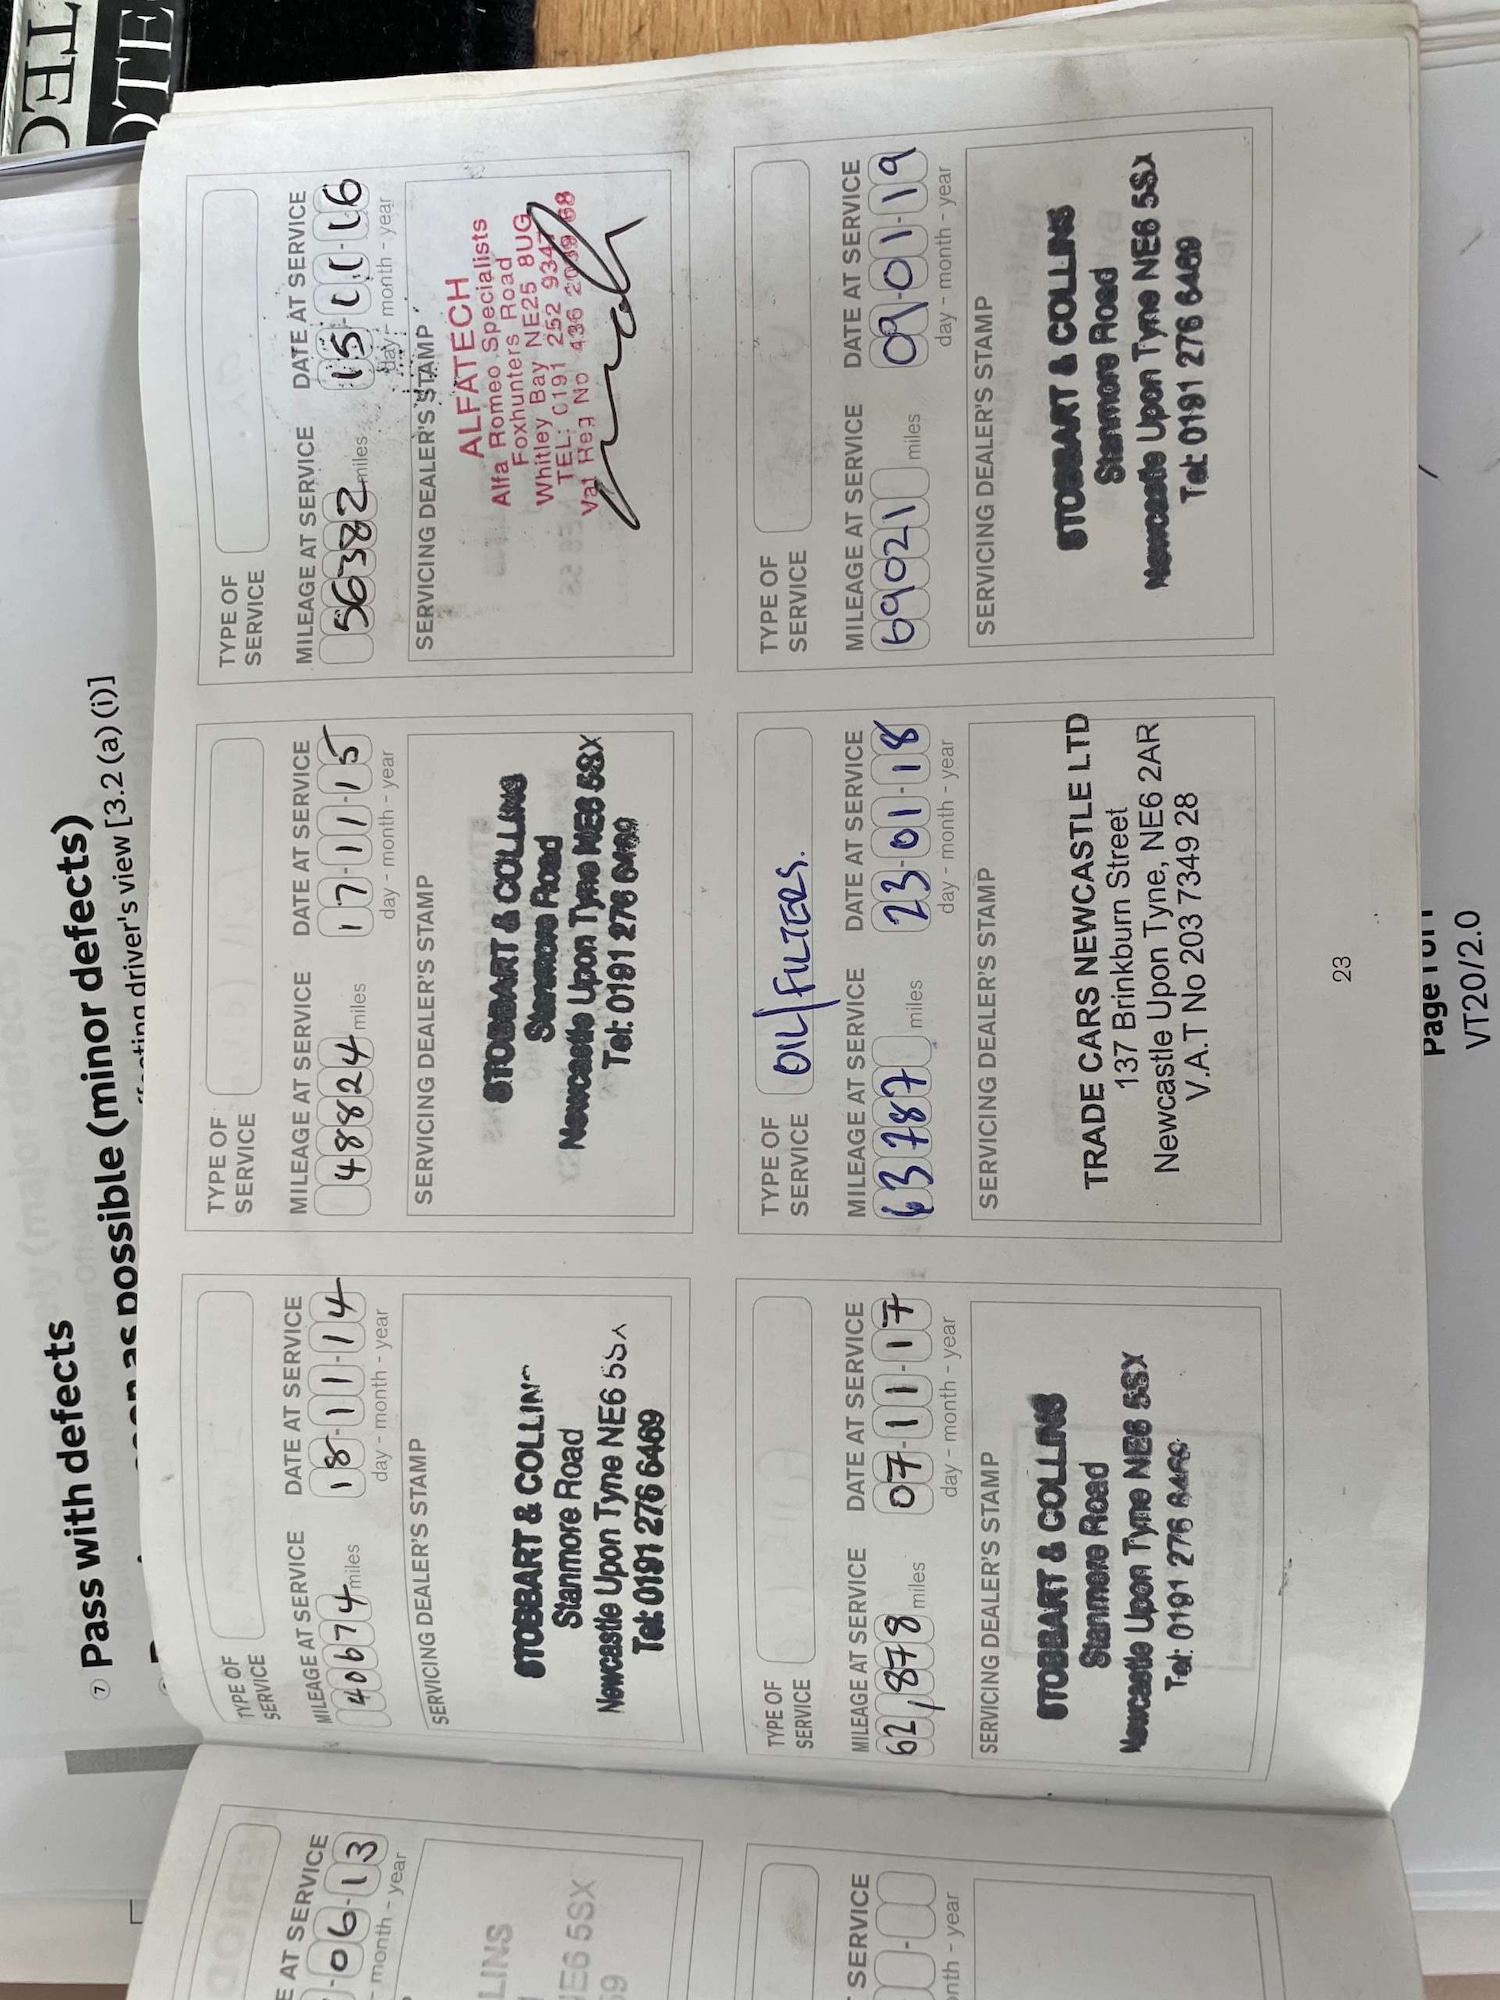 TEC
OTE
7 Pass with defects
as possible (minor defects)
driver's view [3.2 (a) (i)]
TYPE OF SERVICE
MILEAGE AT SERVICE DATE AT SERVICE
40674 miles 18-11-14
day - month - year
SERVICING DEALER'S STAMP
STOBBART & COLLIN
Stanmore Road
Newcastle Upon Tyne NE6 5SX
Tel: 0191 276 6469
TYPE OF SERVICE
MILEAGE AT SERVICE DATE AT SERVICE
48824 miles 17-11-15
day - month - year
SERVICING DEALER'S STAMP
STOBBART & COLLINS
Stanmore Road
Newcastle Upon Tyne NE6 5SX
Tel: 0191 276 6469
TYPE OF SERVICE
MILEAGE AT SERVICE DATE AT SERVICE
56382 miles 15-11-16
day - month - year
SERVICING DEALER'S STAMP
ALFATECH
Alfa Romeo Specialists
Foxhunters Road
Whitley Bay NE25 8UG
TEL: 0191 252 9347
Vat Reg No 436 2039 68
TYPE OF SERVICE
MILEAGE AT SERVICE DATE AT SERVICE
62,878 miles 07-11-17
day - month - year
SERVICING DEALER'S STAMP
STOBBART & COLLINS
Stanmore Road
Newcastle Upon Tyne NE6 5SX
Tel: 0191 276 6469
TYPE OF SERVICE OIL/FILTERS.
MILEAGE AT SERVICE DATE AT SERVICE
63787 miles 23-01-18
day - month - year
SERVICING DEALER'S STAMP
TRADE CARS NEWCASTLE LTD
137 Brinkburn Street
Newcastle Upon Tyne, NE6 2AR
V.A.T No 203 7349 28
TYPE OF SERVICE
MILEAGE AT SERVICE DATE AT SERVICE
69921 miles 09-01-19
day - month - year
SERVICING DEALER'S STAMP
STOBBART & COLLINS
Stanmore Road
Newcastle Upon Tyne NE6 5SX
Tel: 0191 276 6469
23
AT SERVICE
-06-13
month - year
SERVICE
month - year
Page 1 of 1
VT20/2.0